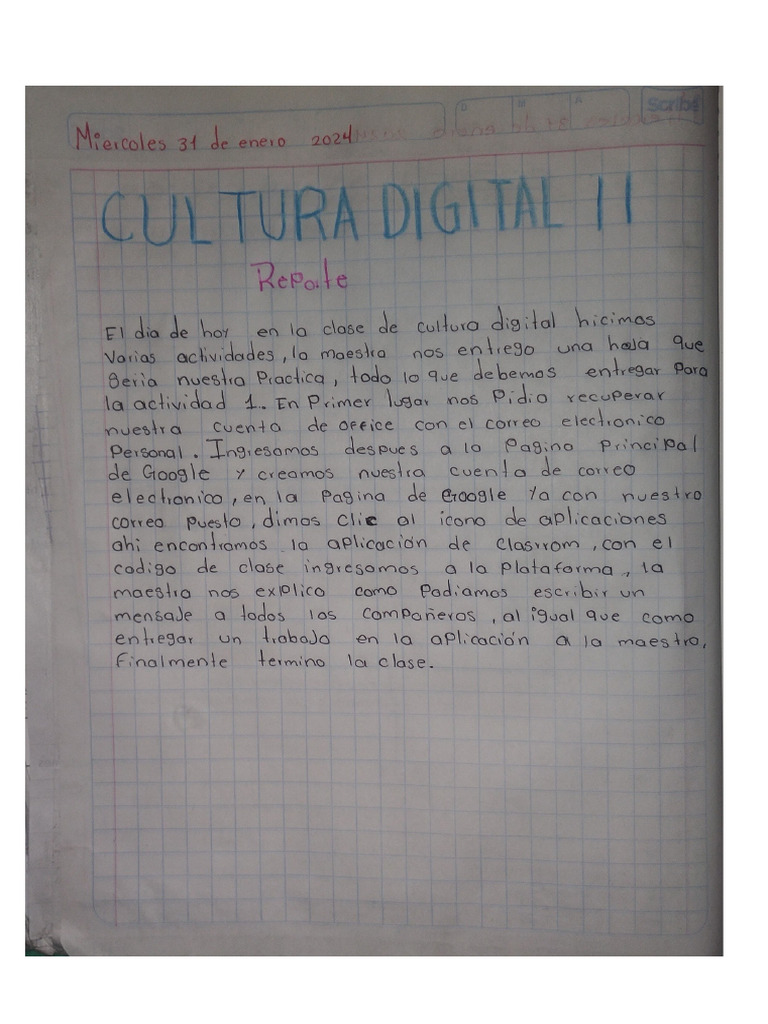 Scribe
D M A
Miercoles 31 de enero 2024
CULTURA DIGITAL II
Reporte
El dia de hoy en la clase de cultura digital hicimos
varias actividades, la maestra nos entrego una hoja que
seria nuestra Practica, todo lo que debemos entregar para
la actividad 1. En Primer lugar nos Pidio recuperar
nuestra cuenta de office con el correo electronico
Personal. Ingresamos despues a la Pagina Principal
de Google y creamos nuestra cuenta de correo
electronico, en la Pagina de Google Ya con nuestro
correo Puesto, dimos Clic al icono de aplicaciones
ahi encontramos la aplicación de Clasrrom, con el
codigo de clase ingresamos a la Plataforma, la
maestra nos explico como Podiamos escribir un
mensaje a todos los compañeros, al igual que como
entregar un trabajo en la aplicación a la maestra,
Finalmente termino la clase.